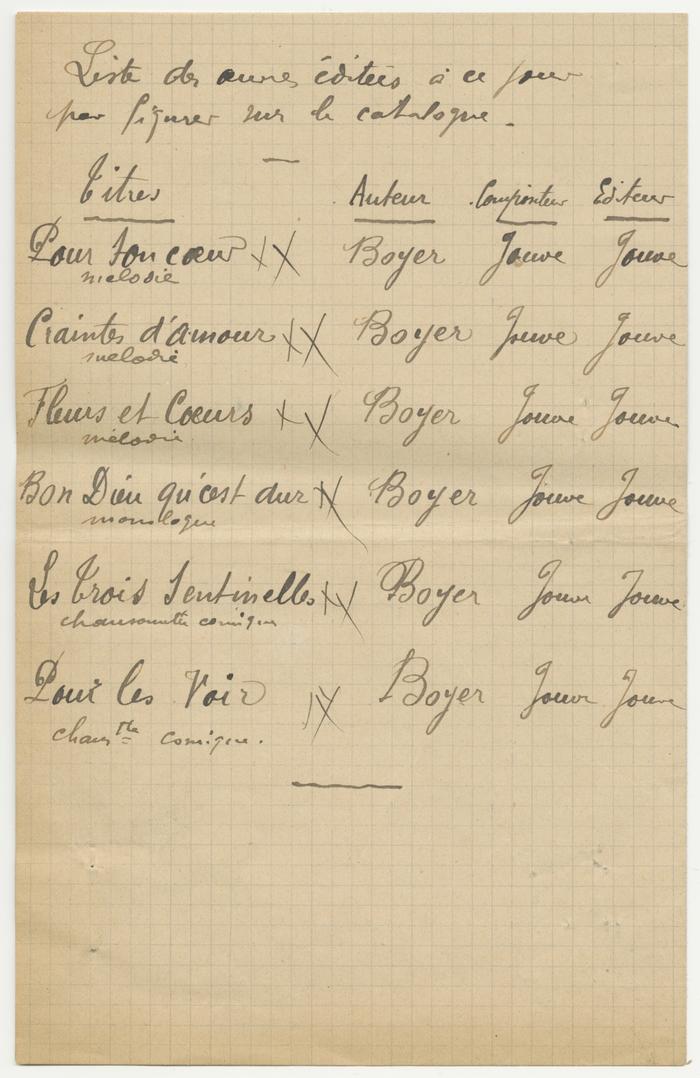 Liste des œuvres éditées à ce jour
pour figurer sur le catalogue.
Titres Auteur Compositeur Editeur
Pour ton cœur XX Boyer Jouve Jouve
mélodie
Craintes d'amour XX Boyer Jouve Jouve
mélodie
Fleurs et Cœurs XX Boyer Jouve Jouve
mélodie
Bon Dieu qu'c'est dur XX Boyer Jouve Jouve
monologue
Les Trois Sentinelles XX Boyer Jouve Jouve
chansonnette comique
Pour les Voir XX Boyer Jouve Jouve
chans^tte comique.